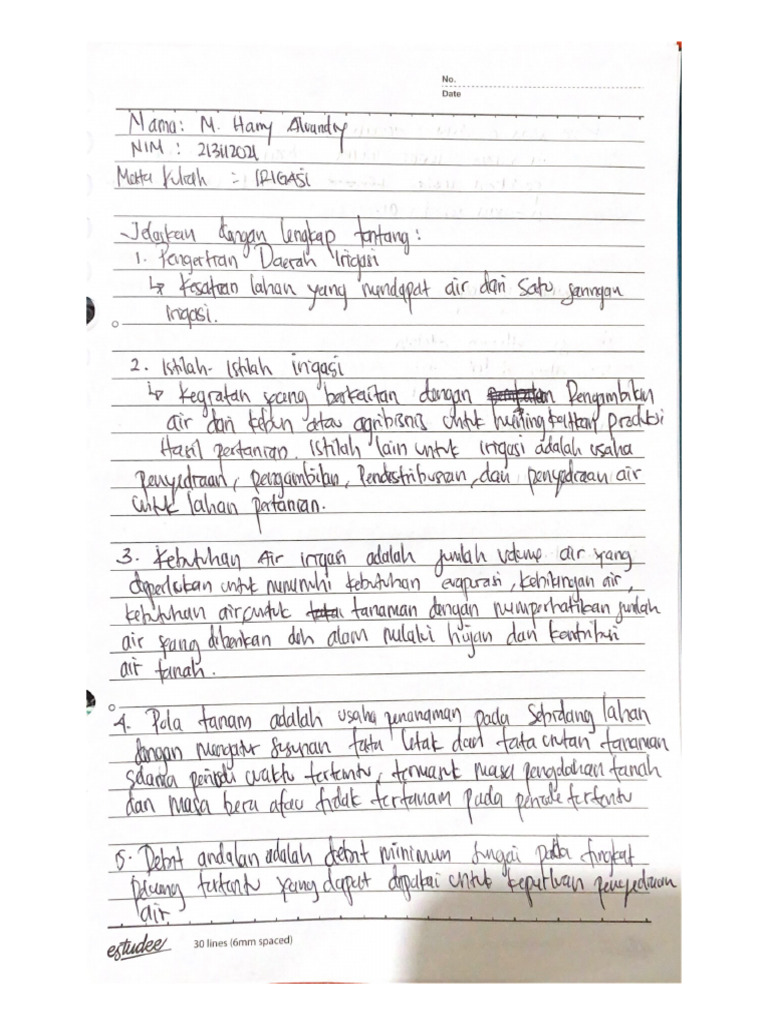 No.
Date
Nama: M. Harry Alvandry
NIM : 213112021
Mata Kuliah = IRIGASI
Jelaskan dengan lengkap tentang :
1. Pengertian Daerah Irigasi
↳ Kesatuan lahan yang mendapat air dari satu jaringan
irigasi.
2. Istilah- Istilah irigasi
↳ Kegiatan yang berkaitan dengan Pengambilan
air dan kebun atau agribisnis untuk meningkatkan produksi
Hasil pertanian. Istilah lain untuk irigasi adalah usaha
penyediaan, pengambilan, Pendistribusian, dan penyediaan air
untuk lahan pertanian.
3. Kebutuhan Air irigasi adalah jumlah volume air yang
diperlukan untuk memenuhi kebutuhan evaporasi, kehilangan air,
kebutuhan air, untuk tanaman dengan memperhatikan jumlah
air yang diberikan oleh alam melalui hujan dan kontribusi
air tanah.
4. Pola tanam adalah usaha penanaman pada Sebidang lahan
dengan mengatur susunan tata letak dan tata urutan tanaman
selama periode waktu tertentu, termasuk masa pengolahan tanah
dan masa bera atau tidak tertanam pada periode tertentu
5. Debit andalan adalah debit minimum sungai pada tingkat
peluang tertentu yang dapat dipakai untuk keperluan penyediaan
air
estudee 30 lines (6mm spaced)